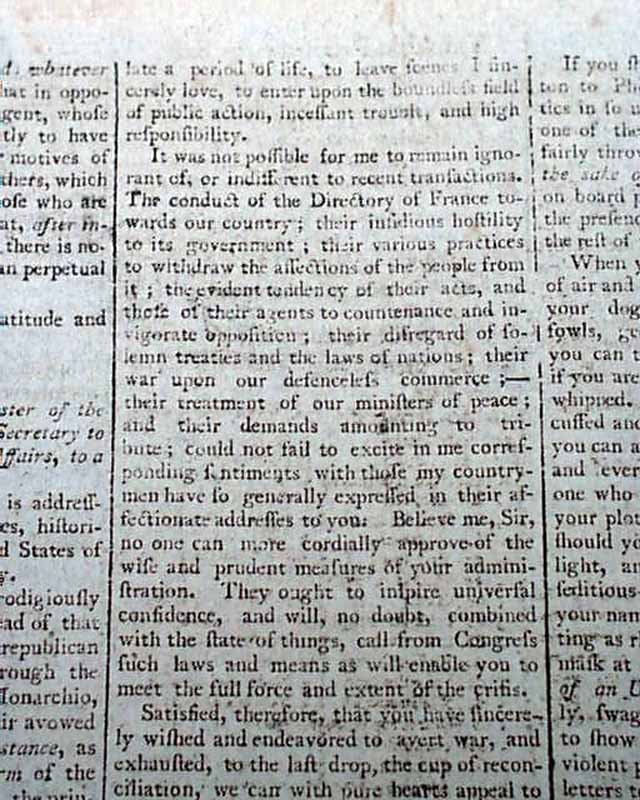 d: whatever
hat in oppo-
gent, whoſe
tly to have
motives of
thers, which
oſe who are
at, after in-
there is no-
an perpetual
atitude and
ster of the
Secretary to
Affairs, to a
is addreſſ-
es, hiſtori-
d States of
y.
rodigiouſly
ead of that
republican
rough the
Monarchio,
ir avowed
stance, as
rm of the
the prin-
late a period of life, to leave ſcenes I ſin-
cerely love, to enter upon the boundleſs field
of public action, inceſſant trouble, and high
reſponſibility.
It was not poſſible for me to remain igno-
rant of, or indifferent to recent tranſactions.
The conduct of the Directory of France to-
wards our country ; their inſidious hoſtility
to its government ; their various practices
to withdraw the affections of the people from
it ; the evident tendency of their acts, and
thoſe of their agents to countenance and in-
vigorate oppoſition ; their diſregard of ſo-
lemn treaties and the laws of nations ; their
war upon our defenceleſs commerce ;—
their treatment of our miniſters of peace ;
and their demands amounting to tri-
bute ; could not fail to excite in me correſ-
ponding ſentiments with thoſe my country-
men have ſo generally expreſſed in their af-
fectionate addreſſes to you. Believe me, Sir,
no one can more cordially approve of the
wiſe and prudent meaſures of your admini-
ſtration. They ought to inſpire univerſal
confidence, and will, no doubt, combined
with the ſtate of things, call from Congreſs
ſuch laws and means as will enable you to
meet the full force and extent of the criſis.
Satisfied, therefore, that you have ſincere-
ly wiſhed and endeavored to avert war, and
exhauſted, to the laſt drop, the cup of recon-
ciliation, we can with pure hearts appeal to
If you
ton to
tics in ſo
one of the
fairly
the sake
on board
the
the reſt of
When
of air and
your dog
fowls,
you can
if you are
whipped.
cuffed and
you can
and ever
one who
your
ſhould
light, an
ſeditious
your
ting as
maſk at
of an
ly, ſwag
to ſhow
violent
letters